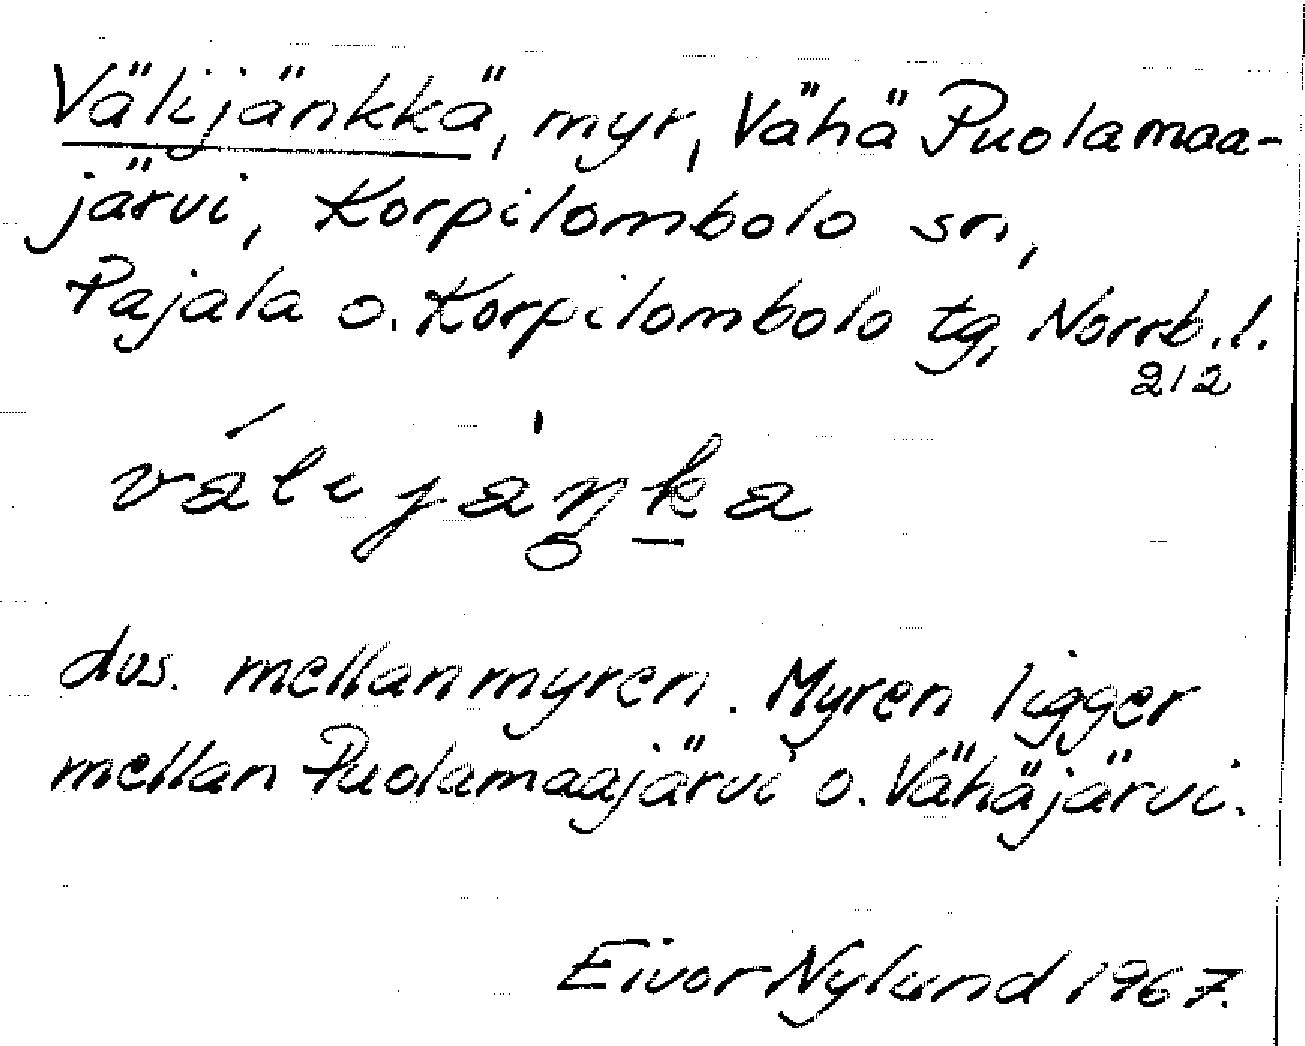 Välijänkkä, myr, Vähä Puolamaa-
järvi, Korpilombolo sn,
Pajala o. Korpilombolo tg, Norrb. l.
212
dvs. mellanmyren. Myren ligger
mellan Puolamaajärvi o. Vähäjärvi.
Eivor Nylund 1967.